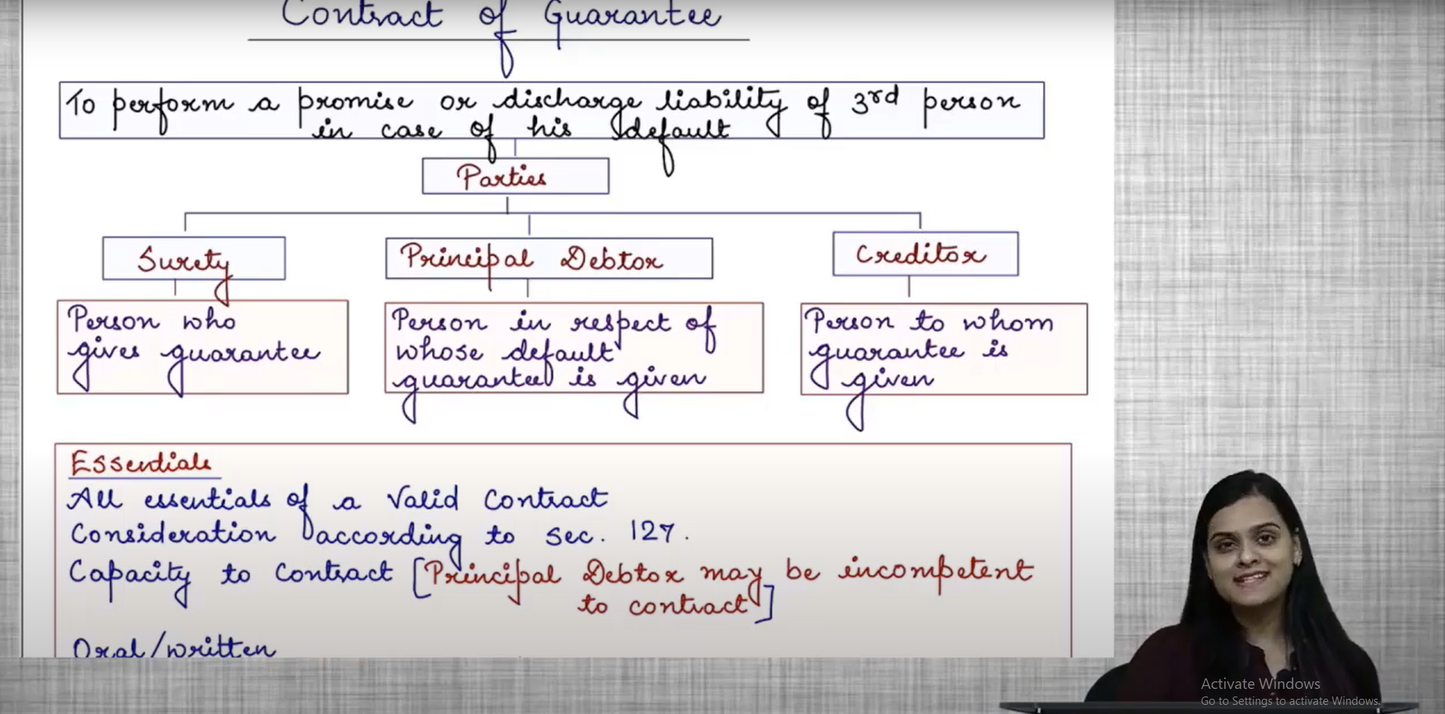 Contract of Guarantee
To perform a promise or discharge liability of 3rd person
in case of his default
Parties
Surety
Principal Debtor
Creditor
Person who
gives guarantee
Person in respect of
whose default
guarantee is given
Person to whom
guarantee is
given
Essentials
All essentials of a Valid Contract
Consideration according to Sec. 127.
Capacity to Contract [Principal Debtor may be incompetent
to contract]
Oral/written
Activate Windows
Go to Settings to activate Windows.